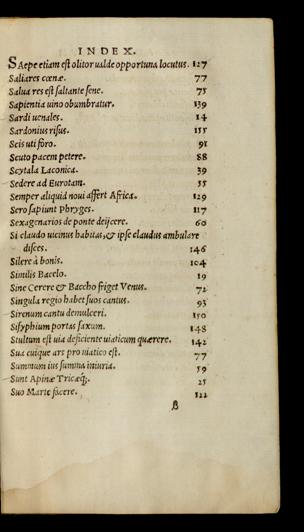 INDEX.
SAepe etiam est olitor ualde opportuna locutus. 127
Saliares cœnæ. 77
Salua res est saltante sene. 75
Sapientia uino obumbratur. 139
Sardi uenales. 14
Sardonius risus. 155
Scis uti foro. 91
Scuto pacem petere. 88
Scytala Laconica. 39
Sedere ad Eurotam. 55
Semper aliquid noui affert Africa. 129
Sero sapiunt Phryges. 117
Sexagenarios de ponte deijcere. 60
Si claudo uicinus habitas, & ipse claudus ambulare
disces. 146
Silere à bonis. 104
Similis Bacelo. 19
Sine Cerere & Baccho friget Venus. 72
Singula regio habet suos cantus. 93
Sirenum cantu demulceri. 150
Sisyphium portas saxum. 148
Stultum est uia deficiente uiaticum quærere. 142
Sua cuique ars pro uiatico est. 77
Summum ius summa iniuria. 59
Sunt Apinæ Tricæq́;. 25
Suo Marte facere. 122